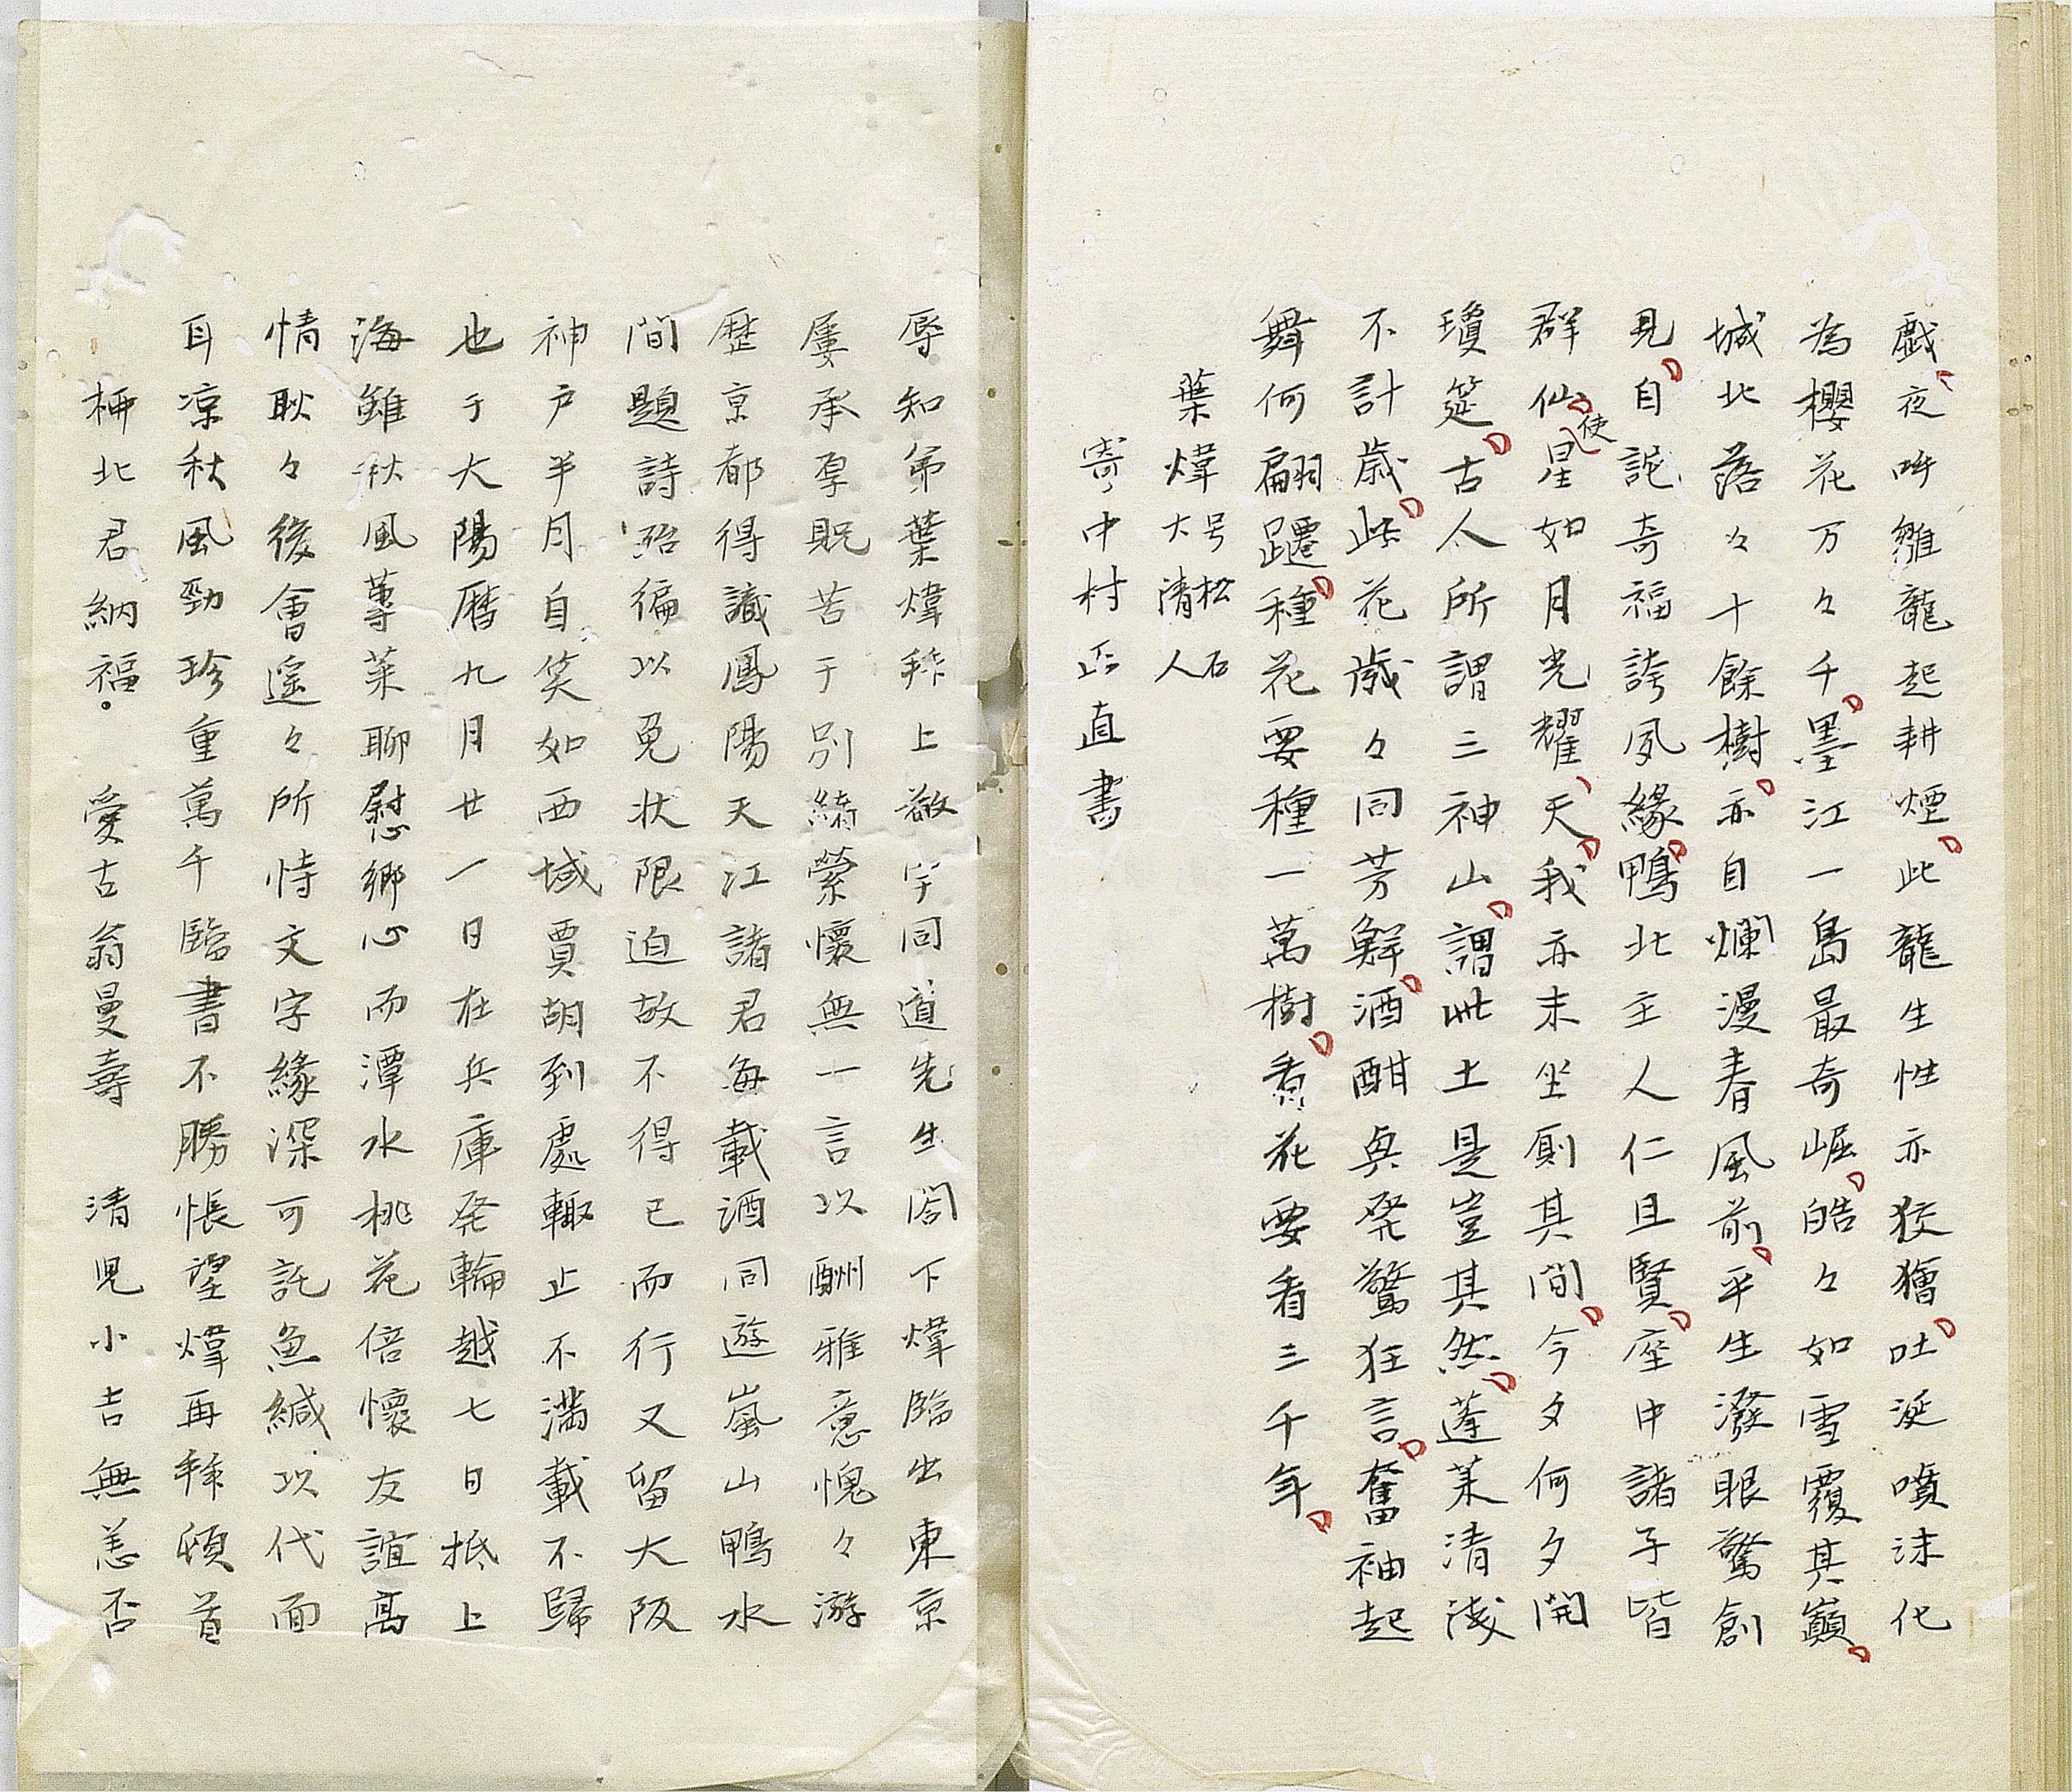 戯夜呼雛龍起耕煙此龍生性亦狡獪吐涎噴沫化
為櫻花万々千墨江一島最奇崛皓々如雪覆其巔
城北落々十餘樹亦自爛漫春風前平生潑眼驚創
見自詑奇福誇夙緣鴨北主人仁且賢座中諸子皆
群仙使星如月光耀天我亦末坐厠其間今夕何夕開
瓊筵古人所謂三神山謂此土是豈其然蓬萊清淺
不計歳此花歳々同芳鮮酒酣興発驚狂言奮袖起
舞何翩躚種花要種一萬樹看花要看三千年
葉煒号松石大清人
寄中村正直書
辱知弟葉煒拜上敬宇同道先生閤下煒臨出東京
屢承厚貺苦于別緒縈懷無一言以酬雅意愧々游
歴京都得識鳳陽天江諸君每載酒同遊嵐山鴨水
間題詩殆徧以免状限迫故不得已而行又留大阪
神戸半月自笑如西域賈胡到處輙止不滿載不歸
也于大陽曆九月廿一日在兵庫発輪越七日抵上
海雖秋風蓴菜聊慰鄉心而潭水桃花倍懷友誼髙
情耿々後會遙々所恃文字緣深可託魚緘以代面
耳凉秋風勁珍重萬千臨書不勝悵望煒再拜頓首
柳北君納福 愛古翁曼壽 清児小吉無恙否